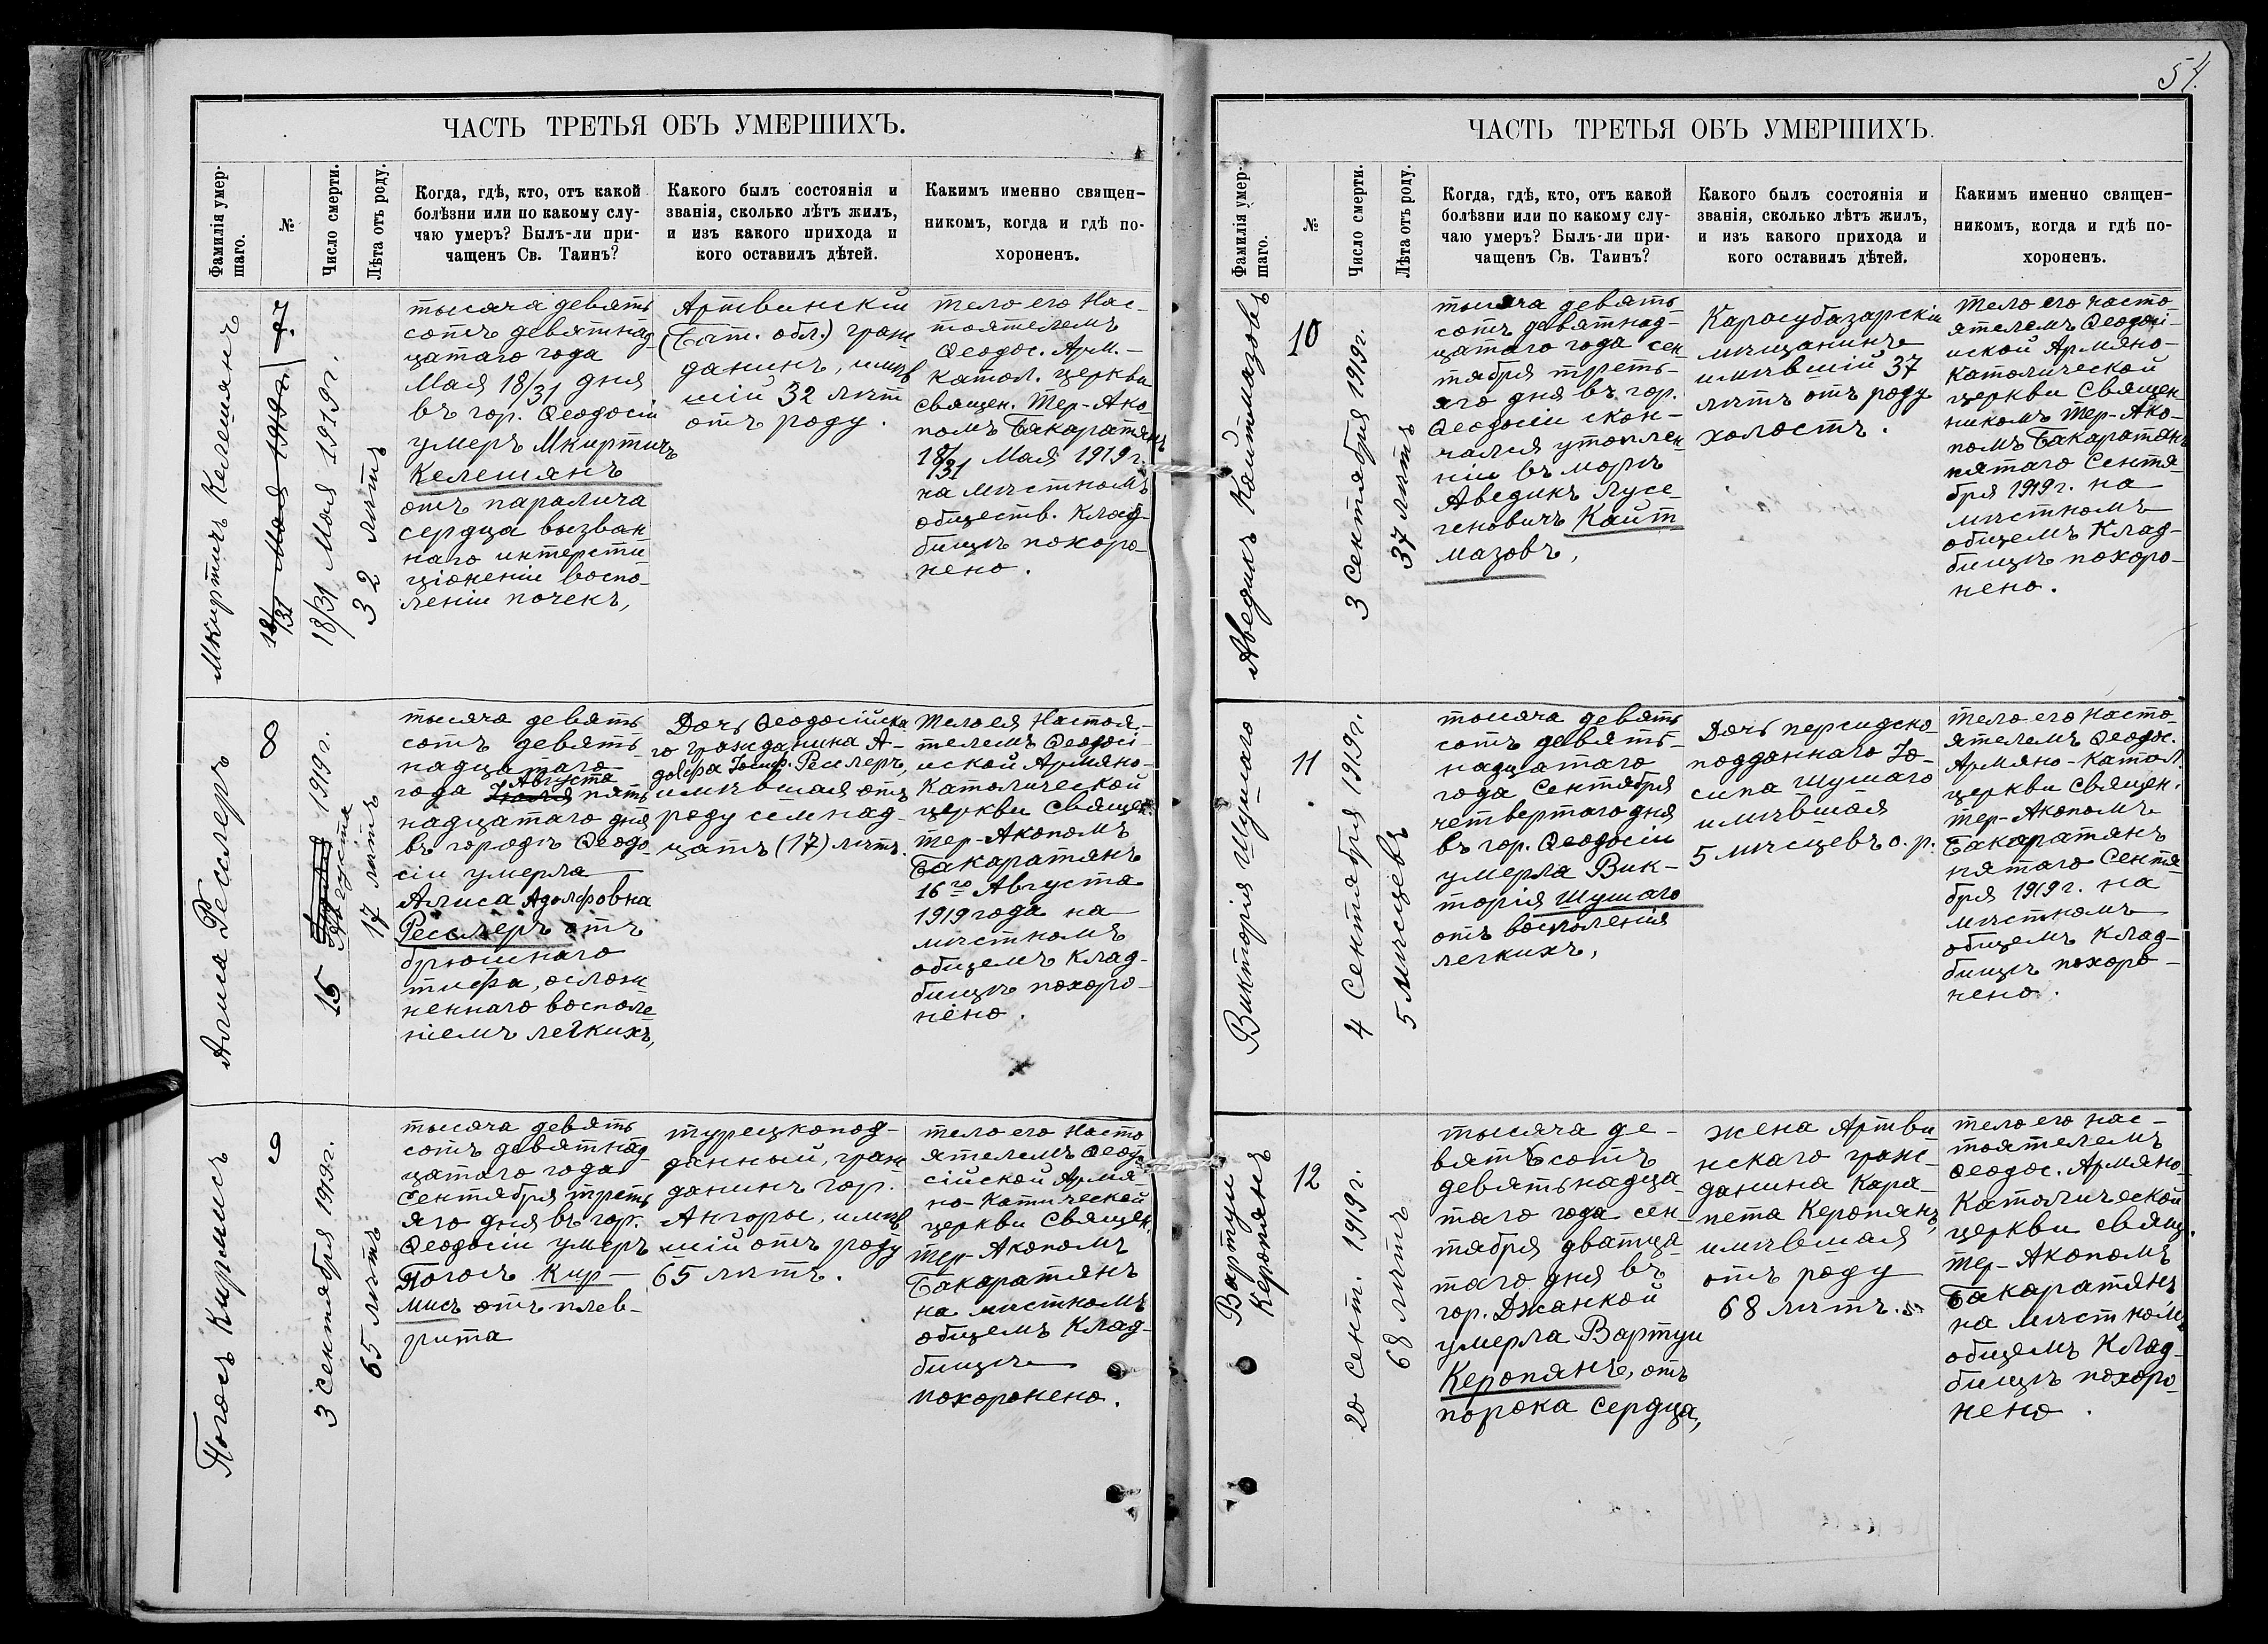 ЧАСТЬ ТРЕТЬЯ ОБЪ УМЕРШИХЪ.
Фамилія умер-
шаго.
№
Число смерти.
Лѣта отъ роду.
Когда, гдѣ, кто, отъ какой
болѣзни или по какому слу-
чаю умеръ? Былъ-ли при-
чащенъ Св. Таинъ?
Какого былъ состоянія и
званія, сколько лѣтъ жилъ,
и изъ какого прихода и
кого оставилъ дѣтей.
Какимъ именно священ-
никомъ, когда и гдѣ по-
хороненъ.
Мкиртичъ Келешянъ
7
18/31 Мая 1919 г.
18/31 Мая 1919 г.
32 лѣтъ
тысяча девять
сотъ девятнад
цатаго года
Мая 18/31 дня
въ гор. Ѳеодосіи
умеръ Мкиртичъ
Келешянъ
отъ паралича
сердца вызван
наго интерсти
ціоненіи воспо-
леніи почекъ,
Артвинскій
(Бат. обл.) граж
данинъ, имѣв
шій 32 лѣт
отъ роду.
тело его Нас-
тоятелемъ
Ѳеодос. Арм.-
Катол. церкви
Священ. Тер-Ако-
помъ Бакаратянъ
18/31 Мая 1919 г.
на мѣстномъ
обществ. Клад-
бищѣ похоро-
нено.
Алиса Ресслеръ
8
15 Августа 1919 г.
17 лѣтъ
тысяча девять
сотъ девять
надцатаго
Августа
года Іюля пять
надцатаго дня
въ городѣ Ѳеодо-
сіи умерла
Алиса Адольфовна
Ресслеръ отъ
брюшнаго
тифа, ослож
неннаго восполе
ніемъ легкихъ,
Дочь Ѳеодосійска
го гражданина А-
дольфа Іосиф. Ресслеръ,
имѣвшая отъ
роду семнад-
цать (17) лѣтъ.
Тело ея Настоя-
телемъ Ѳеодосі-
йской Армяно-
Католической
церкви Священ.
Тер-Акопомъ
Бакаратянъ
16го Августа
1919 года на
мѣстномъ
общемъ Клад-
бищѣ похоро-
нено.
Погосъ Кирмисъ
9
3 Сентября 1919 г.
65 лѣтъ
тысяча девять
сотъ девятнад
цатаго года
Сентября треть
яго дня въ гор.
Ѳеодосіи умеръ
Погосъ Кир-
мисъ отъ плев-
рита
турецкопод-
данный, граж
данинъ гор.
Ангоры, имѣв
шій отъ роду
65 лѣтъ.
тело его Насто
ятелемъ Ѳеодо
сійской Армя-
но-Католической
церкви Священ.
Тер-Акопомъ
Бакаратянъ
на мѣстномъ
общемъ Клад-
бищѣ
похоронено.
54.
ЧАСТЬ ТРЕТЬЯ ОБЪ УМЕРШИХЪ.
Фамилія умер-
шаго.
№
Число смерти.
Лѣта отъ роду.
Когда, гдѣ, кто, отъ какой
болѣзни или по какому слу-
чаю умеръ? Былъ-ли при-
чащенъ Св. Таинъ?
Какого былъ состоянія и
званія, сколько лѣтъ жилъ,
и изъ какого прихода и
кого оставилъ дѣтей.
Какимъ именно священ-
никомъ, когда и гдѣ по-
хороненъ.
Аведикъ Кайтмазовъ
10
3 Сентября 1919 г.
37 лѣтъ
тысяча девять
сотъ девятнад-
цатаго года сен
тября треть-
яго дня въ гор.
Ѳеодосіи скон-
чался утоплен
ніи въ морѣ
Аведикъ Лусе-
геновичъ Кайт
мазовъ,
Карасубазарскій
мѣщанинъ
имѣвшій 37
лѣтъ отъ роду
холостъ.
Тело его насто
ятелемъ Ѳеодосі-
йской Армяно-
Католической
церкви Священ
никомъ Тер-Ако-
помъ Бакаратянъ
пятаго Сентя
бря 1919 г. на
мѣстномъ
общемъ Клад-
бищѣ похоро-
нено.
Викторія Шушаго
11
4 Сентября 1919 г.
5 мѣсцевъ
тысяча девять
сотъ девять-
надцатаго
года Сентября
четвертаго дня
въ гор. Ѳеодосіи
умерла Вик-
торія Шушаго
отъ восполенія
легкихъ,
Дочь персидско
подданнаго Іо-
сипа Шушаго
имѣвшая
5 мѣсцевъ о. р.
Тело его Насто-
ятелемъ Ѳеодос.
Армяно-Катол.
церкви Священ.
Тер-Акопомъ
Бакаратянъ
пятаго Сентя
бря 1919 г. на
мѣстномъ
общемъ Клад-
бищѣ похоро-
нено.
Вартуи
Керопянъ
12
20 Сент. 1919 г.
68 лѣтъ
тысяча де-
вятьсотъ
девятьнадца-
таго года сен-
тября дватца
таго дня въ
гор. Джанкой
умерла Вартуи
Керопянъ, отъ
порока сердца,
жена Артви
нскаго граж-
данина Кара-
пета Керопянъ,
имѣвшая
отъ роду
68 лѣтъ.
тело его нас-
тоятелемъ
Ѳеодос. Армяно
Католической
церкви свящ.
Тер-Акопомъ
Бакаратянъ
на мѣстномъ
общемъ Клад-
бищѣ похоро-
нено.